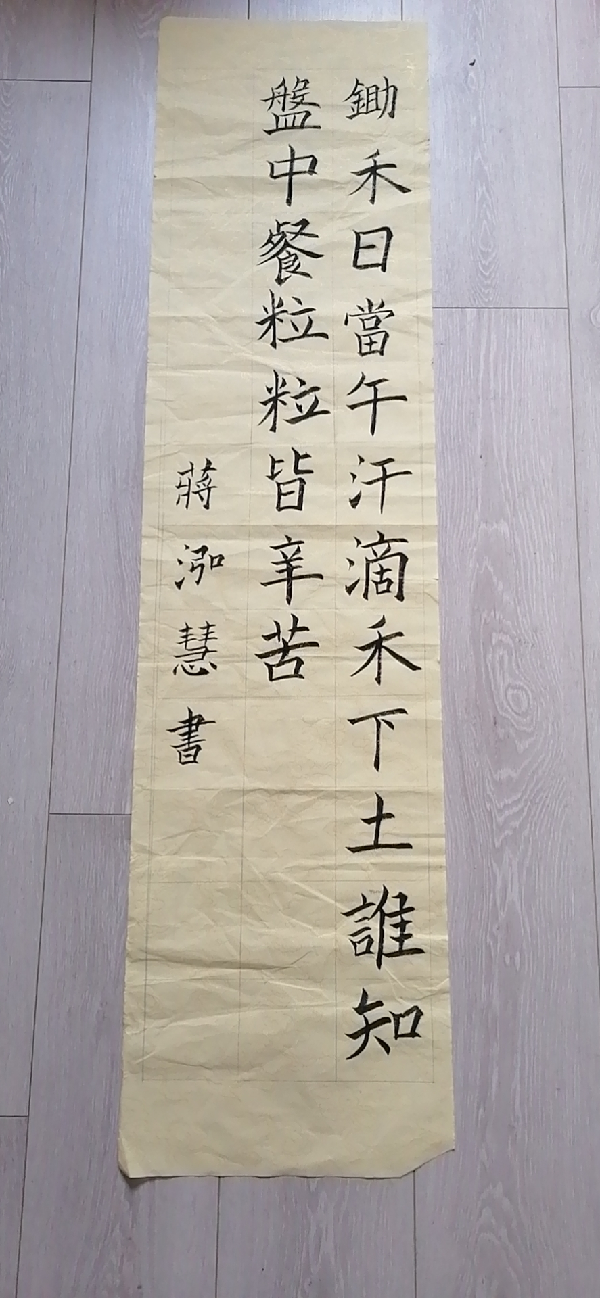 鋤禾日當午汗滴禾下土誰知
盤中餐粒粒皆辛苦
蔣泓慧書